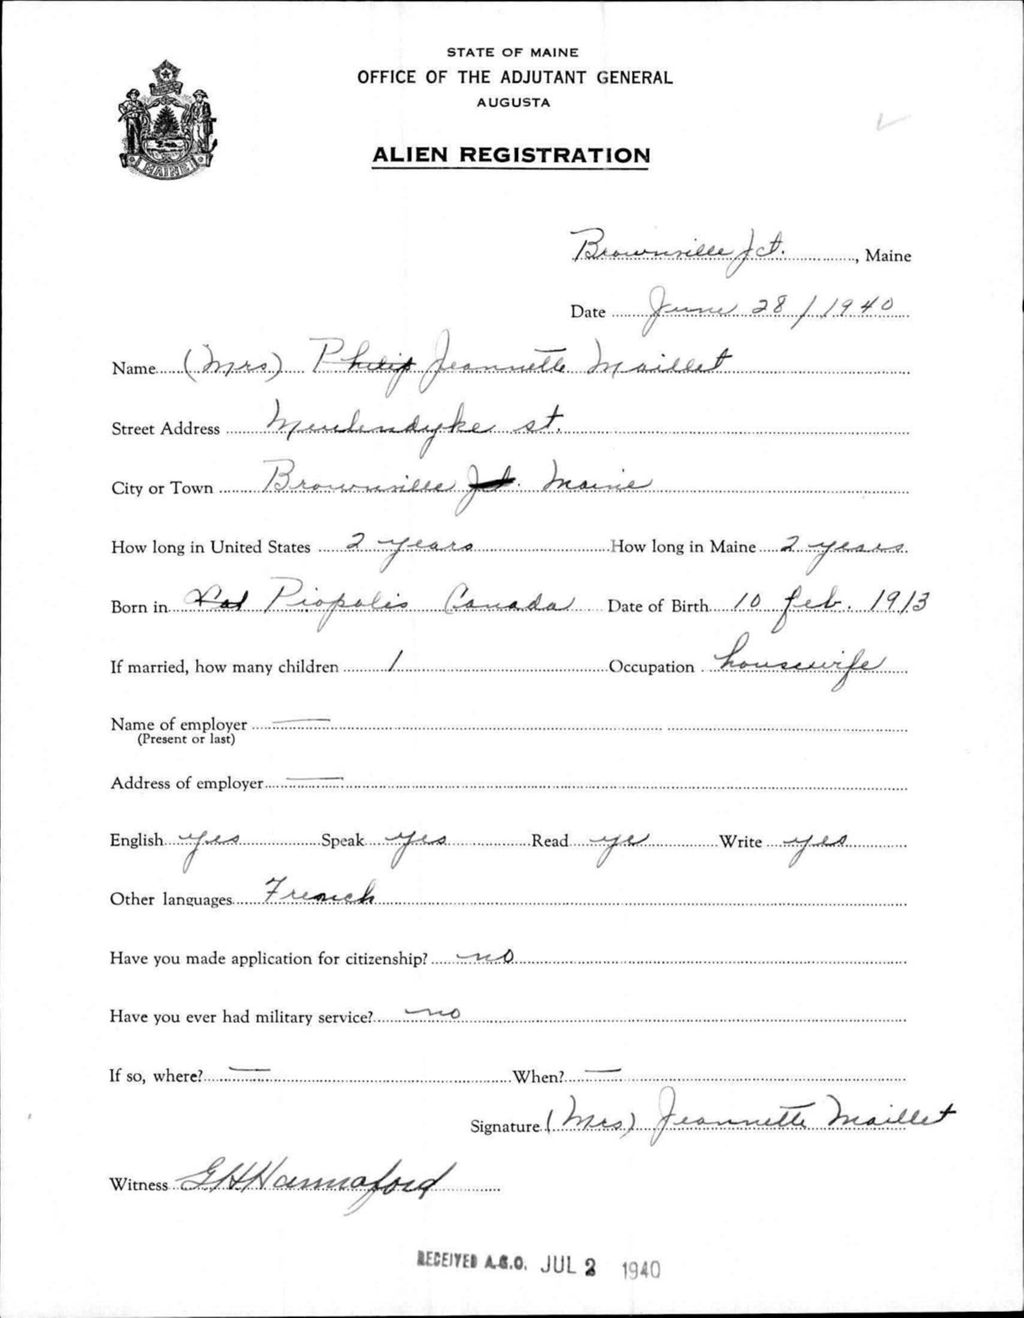 STATE OF MAINE
OFFICE OF THE ADJUTANT GENERAL
AUGUSTA
ALIEN REGISTRATION
MAINE
Brownville Jct., Maine
Date June 28/1940
Name (Mrs) Philip Jeannette Maillet
Street Address st.
City or Town Brownville Jct. Maine
How long in United States 2 years How long in Maine 2 years.
Born in Piopolis Canada Date of Birth 10 feb. 1913
If married, how many children 1 Occupation housewife
Name of employer —
(Present or last)
Address of employer —
English yes Speak yes Read ye Write yes
Other languages French
Have you made application for citizenship? no
Have you ever had military service? no
If so, where? — When? —
Signature (Mrs) Jeannette Maillet
Witness G H Hannaford
RECEIVED A.G.O. JUL 2 1940